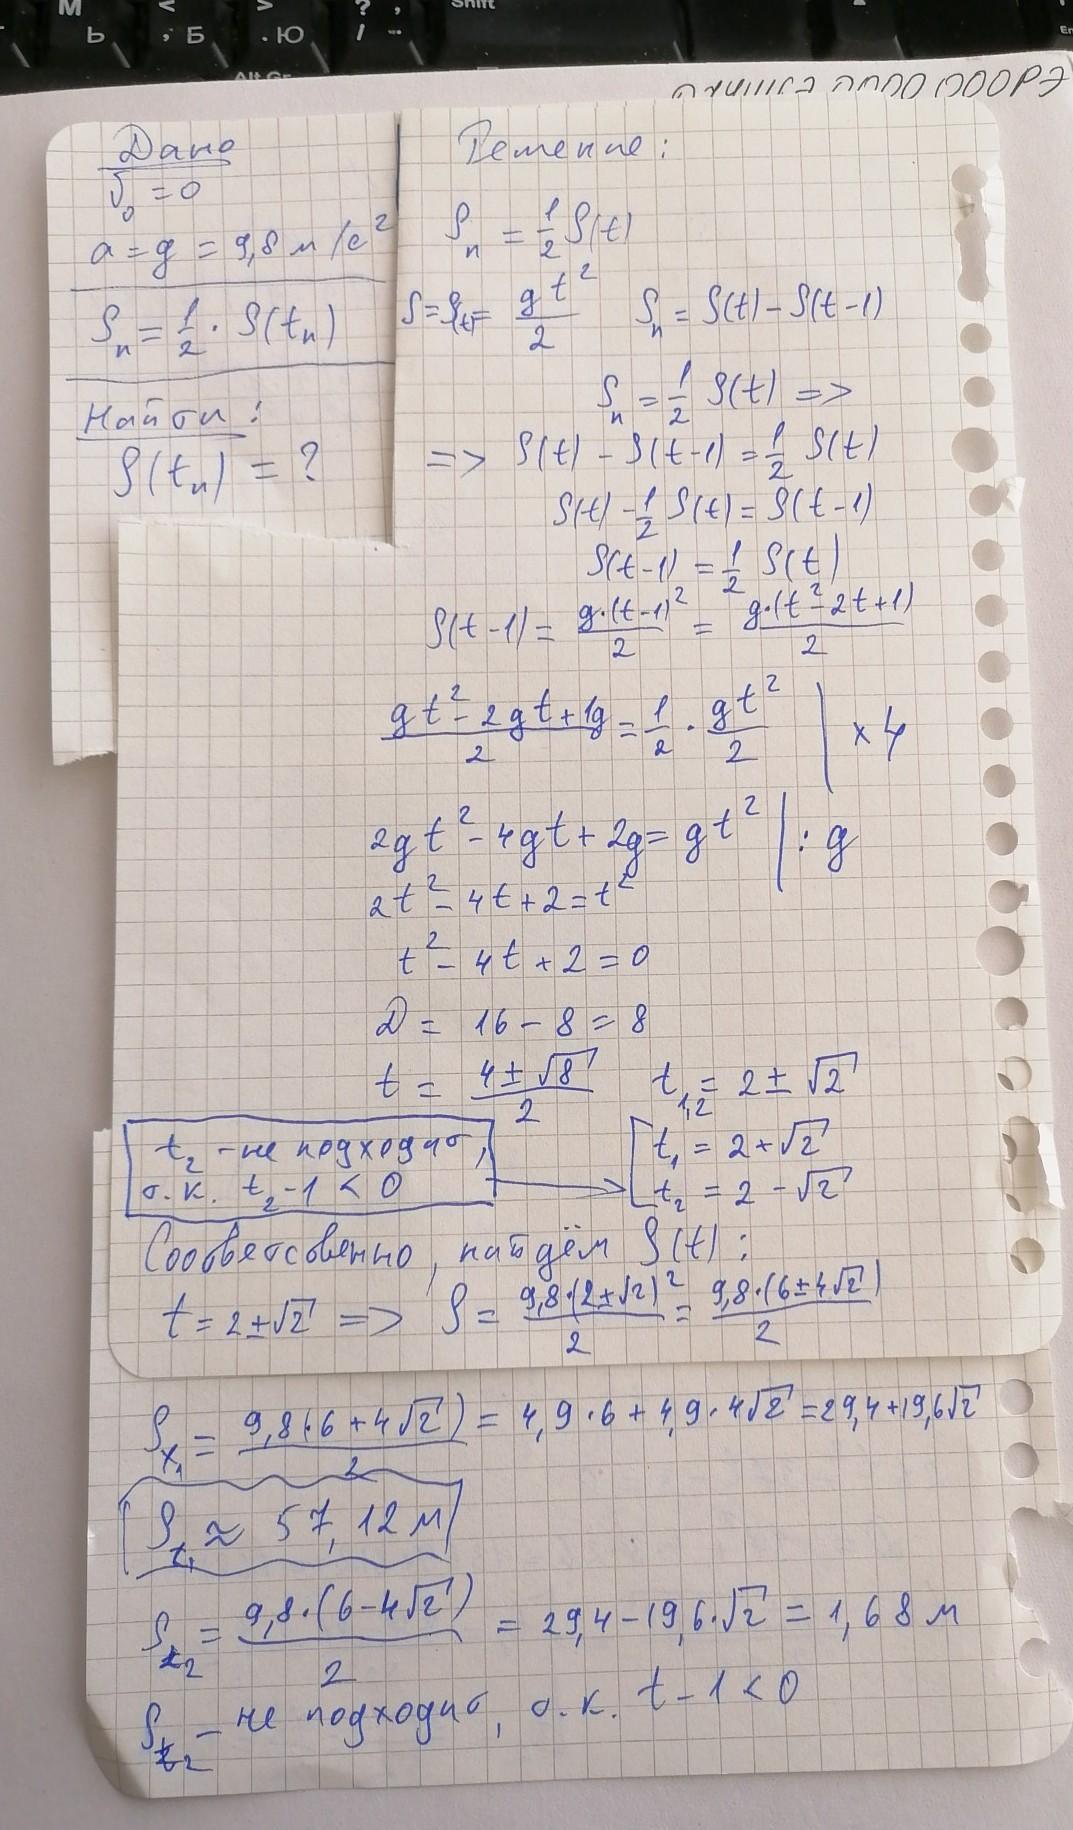 М < > ? , Shift
Ь , Б . Ю /
Alt Gr
Дано
V₀ = 0
a = g = 9,8 м/с²
Sₙ = 1/2 · S(tₙ)
Найти:
S(tₙ) = ?
Решение:
Sₙ = 1/2 S(t)
S = S(t) = gt²/2 Sₙ = S(t) - S(t-1)
Sₙ = 1/2 S(t) =>
=> S(t) - S(t-1) = 1/2 S(t)
S(t) - 1/2 S(t) = S(t-1)
S(t-1) = 1/2 S(t)
S(t-1) = g·(t-1)²/2 = g·(t²-2t+1)/2
gt²-2gt+1g/2 = 1/2 · gt²/2 | × 4
2gt² - 4gt + 2g = gt² | : g
2t² - 4t + 2 = t²
t² - 4t + 2 = 0
D = 16 - 8 = 8
t = 4±√8/2 t₁,₂ = 2 ± √2
t₂ - не подходит,
т.к. t₂-1 < 0
t₁ = 2+√2
t₂ = 2-√2
Соответсвенно, найдём S(t):
t = 2±√2 => S = 9,8·(2±√2)²/2 = 9,8·(6±4√2)/2
Sx₁ = 9,8(6+4√2)/2 = 4,9·6+4,9·4√2 = 29,4+19,6√2
St₁ ≈ 57,12 м
St₂ = 9,8·(6-4√2)/2 = 29,4-19,6·√2 = 1,68 м
St₂ - не подходит, т.к. t-1<0